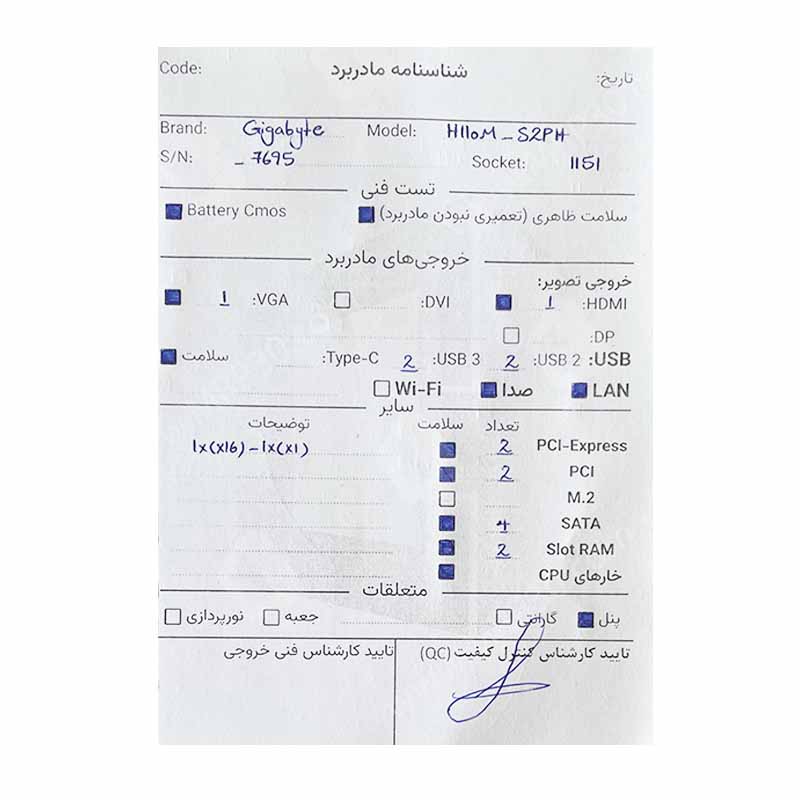 شناسنامه مادربرد
Code:
تاریخ:
Brand: Gigabyte Model: H110M_S2PH
S/N: _ 7695 Socket: 1151
تست فنی
سلامت ظاهری (تعمیری نبودن مادربرد) Battery Cmos
خروجی‌های مادربرد
خروجی تصویر:
HDMI: 1 DVI: VGA: 1
DP:
USB: USB 2: 2 USB 3: 2 Type-C: سلامت
LAN صدا Wi-Fi
سایر
تعداد سلامت توضیحات
PCI-Express 2 1x(x16) – 1x(x1)
PCI 2
M.2
SATA 4
Slot RAM 2
خارهای CPU
متعلقات
پنل گارانتی جعبه نورپردازی
تایید کارشناس کنترل کیفیت (QC) تایید کارشناس فنی خروجی